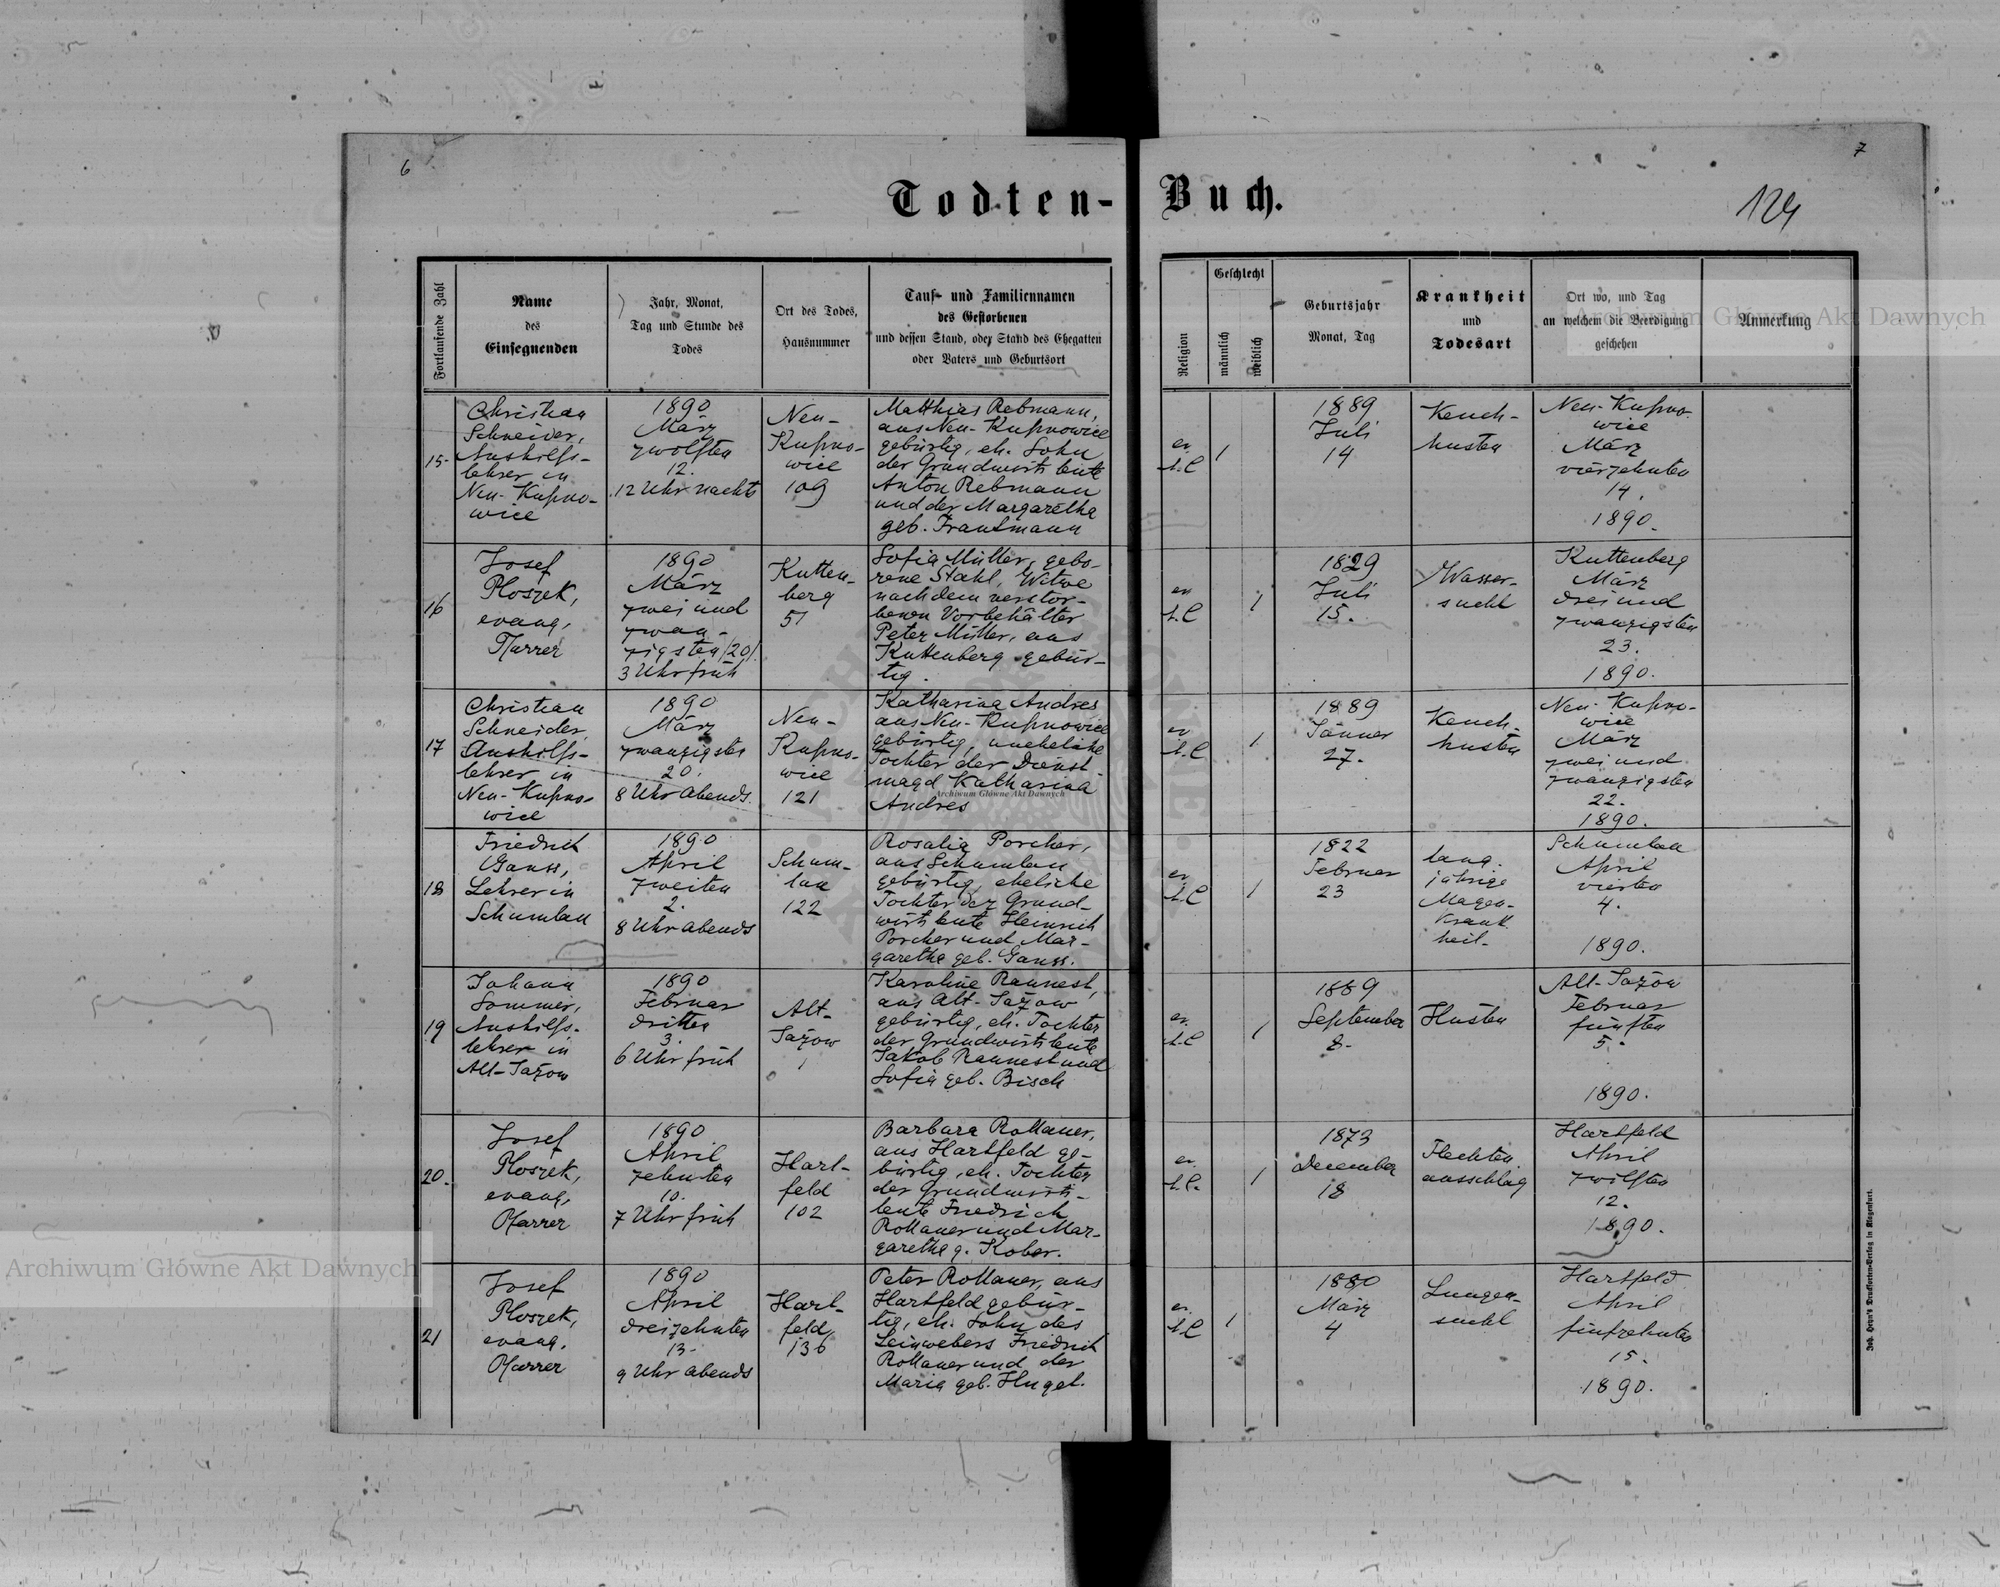 6
7
Todten-
Buch.
124
Fortlaufende Zahl
Name
des
Einsegnenden
Jahr, Monat,
Tag und Stunde des
Todes
Ort des Todes,
Hausnummer
Tauf- und Familiennamen
des Gestorbenen
und dessen Stand, oder Stand des Ehegatten
oder Vaters und Geburtsort
Religion
Geschlecht
männlich
weiblich
Geburtsjahr
Monat, Tag
Krankheit
und
Todesart
Ort wo, und Tag
an welchem die Beerdigung
geschehen
Anmerkung
15.
Christian
Schneider,
Aushilfs-
lehrer in
Neu-Kupno-
wice
1890
März
zwölften
12.
12 Uhr nachts
Neu-
Kupno-
wice
109
Matthias Rebmann,
aus Neu-Kupnowice
gebürtig, eh. Sohn
der Grundwirtsleute
Anton Rebmann
und der Margaretha
geb. Trautmann
ev.
A.C
1
1889
Juli
14
Keuch-
husten
Neu-Kupno-
wice
März
vierzehnten
14.
1890.
16
Josef
Ploszek,
evang.
Pfarrer
1890
März
zwei und
zwan-
zigsten /20/.
3 Uhr früh
Kutten-
berg
51
Sofia Müller, gebo-
rene Stahl, Witwe
nach dem verstor-
benen Vorbehälter
Peter Müller, aus
Kuttenberg gebür-
tig.
ev
A.C
1
1829
Juli
15.
Wasser-
sucht
Kuttenberg
März
drei und
zwanzigsten
23.
1890.
17
Christian
Schneider,
Aushilfs-
lehrer in
Neu-Kupno-
wice
1890
März
zwanzigsten
20.
8 Uhr abends.
Neu-
Kupno-
wice
121
Katharina Andres
aus Neu-Kupnowice
gebürtig, uneheliche
Tochter der Dienst-
magd Katharina
Andres
ev
A.C
1
1889
Jänner
27.
Keuch-
husten
Neu-Kupno-
wice
März
zwei und
zwanzigsten
22.
1890.
18
Friedrich
Gauss,
Lehrer in
Schumlau
1890
April
zweiten
2.
8 Uhr abends
Schum-
lau
122
Rosalia Porcher,
aus Schumlau
gebürtig, eheliche
Tochter der Grund-
wirtsleute Heinrich
Porcher und Mar-
garetha geb. Gauss.
ev.
A.C
1
1822
Februar
23
lang-
jährige
Magen-
krank
heit.
Schumlau
April
vierten
4.
1890.
19
Johann
Sommer,
Aushilfs-
lehrer in
Alt-Jażow
1890
Februar
dritten
3.
6 Uhr früh
Alt-
Jażow
1
Karoline Raunest,
aus Alt-Jażow
gebürtig, eh. Tochter
der Grundwirtsleute
Jakob Raunest und
Sofia geb. Bisch
ev.
A.C
1
1889
September
8.
Husten
Alt-Jażow
Februar
fünften
5.
1890.
20.
Josef
Ploszek,
evang.
Pfarrer
1890
April
zehnten
10.
7 Uhr früh
Hart-
feld
102
Barbara Rollauer,
aus Hartfeld ge-
bürtig, eh. Tochter
der Grundwirts-
leute Friedrich
Rollauer und Mar-
garetha g. Kober.
ev.
A.C.
1
1873
December
18
Flechten
ausschlag
Hartfeld
April
zwölften
12.
1890.
21
Josef
Ploszek,
evang.
Pfarrer
1890
April
dreizehnten
13.
9 Uhr abends
Hart-
feld,
136
Peter Rollauer, aus
Hartfeld gebür-
tig, eh. Sohn des
Leinwebers Friedrich
Rollauer und der
Maria geb. Hugel.
ev.
A.C
1
1880
März
4
Lungen-
sucht
Hartfeld
April
fünfzehnten
15.
1890.
Joh. Heyn's Drucksorten-Verlag in Klagenfurt.
Archiwum Główne Akt Dawnych
Archiwum Główne Akt Dawnych
Archiwum Główne Akt Dawnych